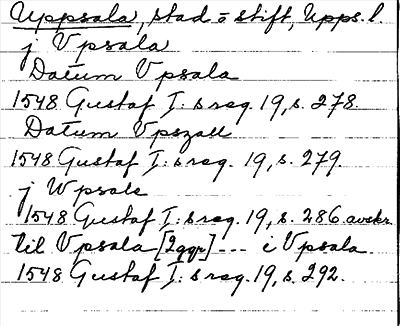 Uppsala, stad o stift, Upps. l.
j Vpsala
Datum Vpsala
1548 Gustaf I:s reg. 19, s. 278.
Datum Vpszall
1548 Gustaf I:s reg. 19, s. 279.
j Wpsale
1548 Gustaf I:s reg. 19, s. 286. avskr.
til Vpsala [2ggr] --- i Vpsala.
1548 Gustaf I:s reg. 19, s. 292.